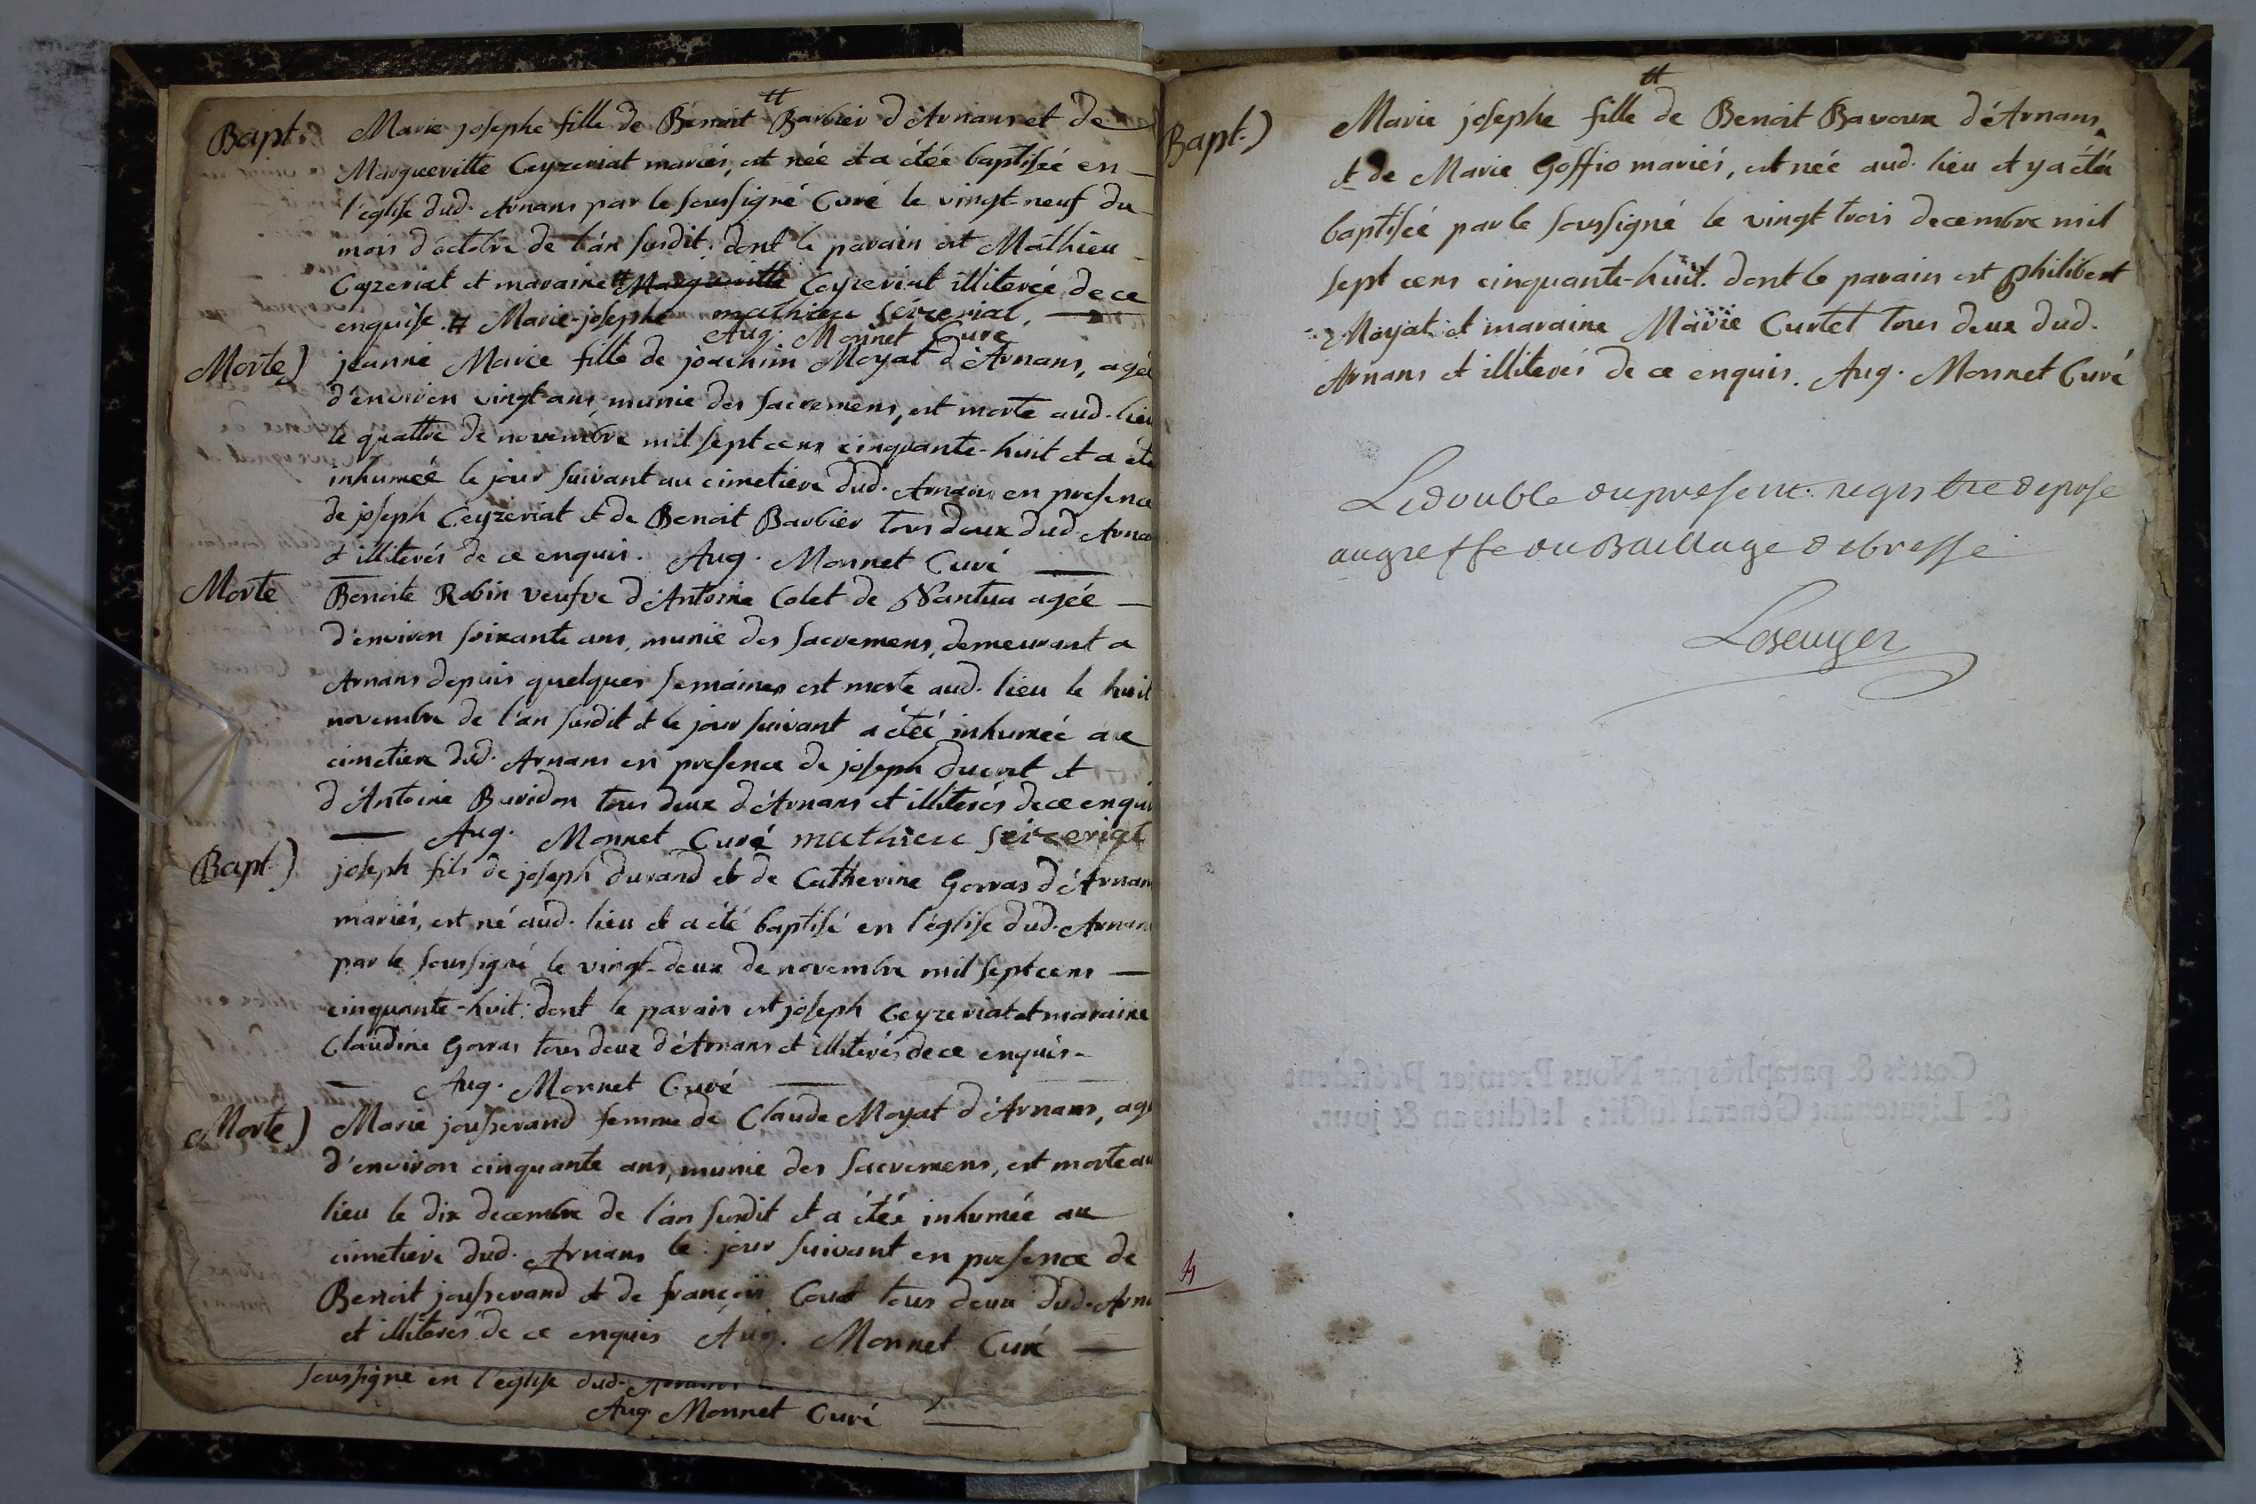 Bapt. Marie josephe fille de Benoit # Barbier d'Arnans et de
Margueritte Ceyzeriat mariés, est née et a étée baptisée en
l'eglise dud. Arnans par le soussigné Curé le vingt neuf du
mois d'octobre de l'an susdit. dont le parain est Mathieu
Ceyzeriat et maraine # Margueritte Ceyzeriat illiterée de ce
enquise. # Marie-josephe mathieu seizeriat.
Aug. Monnet Curé
Morte) jeanne Marie fille de joachim Moyat d'Arnans, agée
d'environ vingt ans, munie des sacremens, est morte aud. lieu
le quattre de novembre mil sept cens cinquante-huit et a été
inhumée le jour suivant au cimetiere dud. Arnans en presence
de joseph Ceyzeriat et de Benoit Barbier tous deux dud. Arnans
et illiterés de ce enquis. Aug. Monnet Curé
Morte Benoite Robin veufve d'Antoine Colet de Nantua agée
d'environ soixante ans, munie des sacremens, demeurant a
Arnans depuis quelques semaines est morte aud. lieu le huit
novembre de l'an susdit et le jour suivant a étée inhumée au
cimetiere dud. Arnans en presence de joseph ducret et
d'Antoine Buridon tous deux d'Arnans et illiterés de ce enquis
Aug. Monnet Curé mathieu seizeriat
Bapt.) joseph fils de joseph durand et de Catherine Gorras d'Arnans
mariés, est né aud. lieu et a été baptisé en l'église dud. Arnans
par le soussigné le vingt-deux de novembre mil sept cens
cinquante-huit: dont le parain est joseph Ceyzeriat et maraine
Claudine Gorras tous deux d'Arnans et illiterés de ce enquis.
Aug. Monnet Curé
Morte) Marie jousserand femme de Claude Moyat d'Arnans, agé
d'environ cinquante ans, munie des sacremens, est morte au
lieu le dix decembre de l'an susdit et a étée inhumée au
cimetiere dud. Arnans le jour suivant en presence de
Benoit jousserand et de françois Coust tous deux dud. Arna
et illiterés de ce enquis Aug. Monnet Curé
soussigné en l'eglise dud. Arnans
Aug. Monnet Curé
Bapt.) Marie josephe fille # de Benoit Bavoux d'Arnans
et de Marie Goffio mariés, est née aud. lieu et y a étée
baptisée par le soussigné le vingt trois decembre mil
sept cens cinquante-huit. dont le parain est Philibert
Moyat et maraine Marie Curtet tous deux dud.
Arnans et illiterés de ce enquis. Aug. Monnet Curé
Le double du present registre depose
au greffe du Baillage de bresse